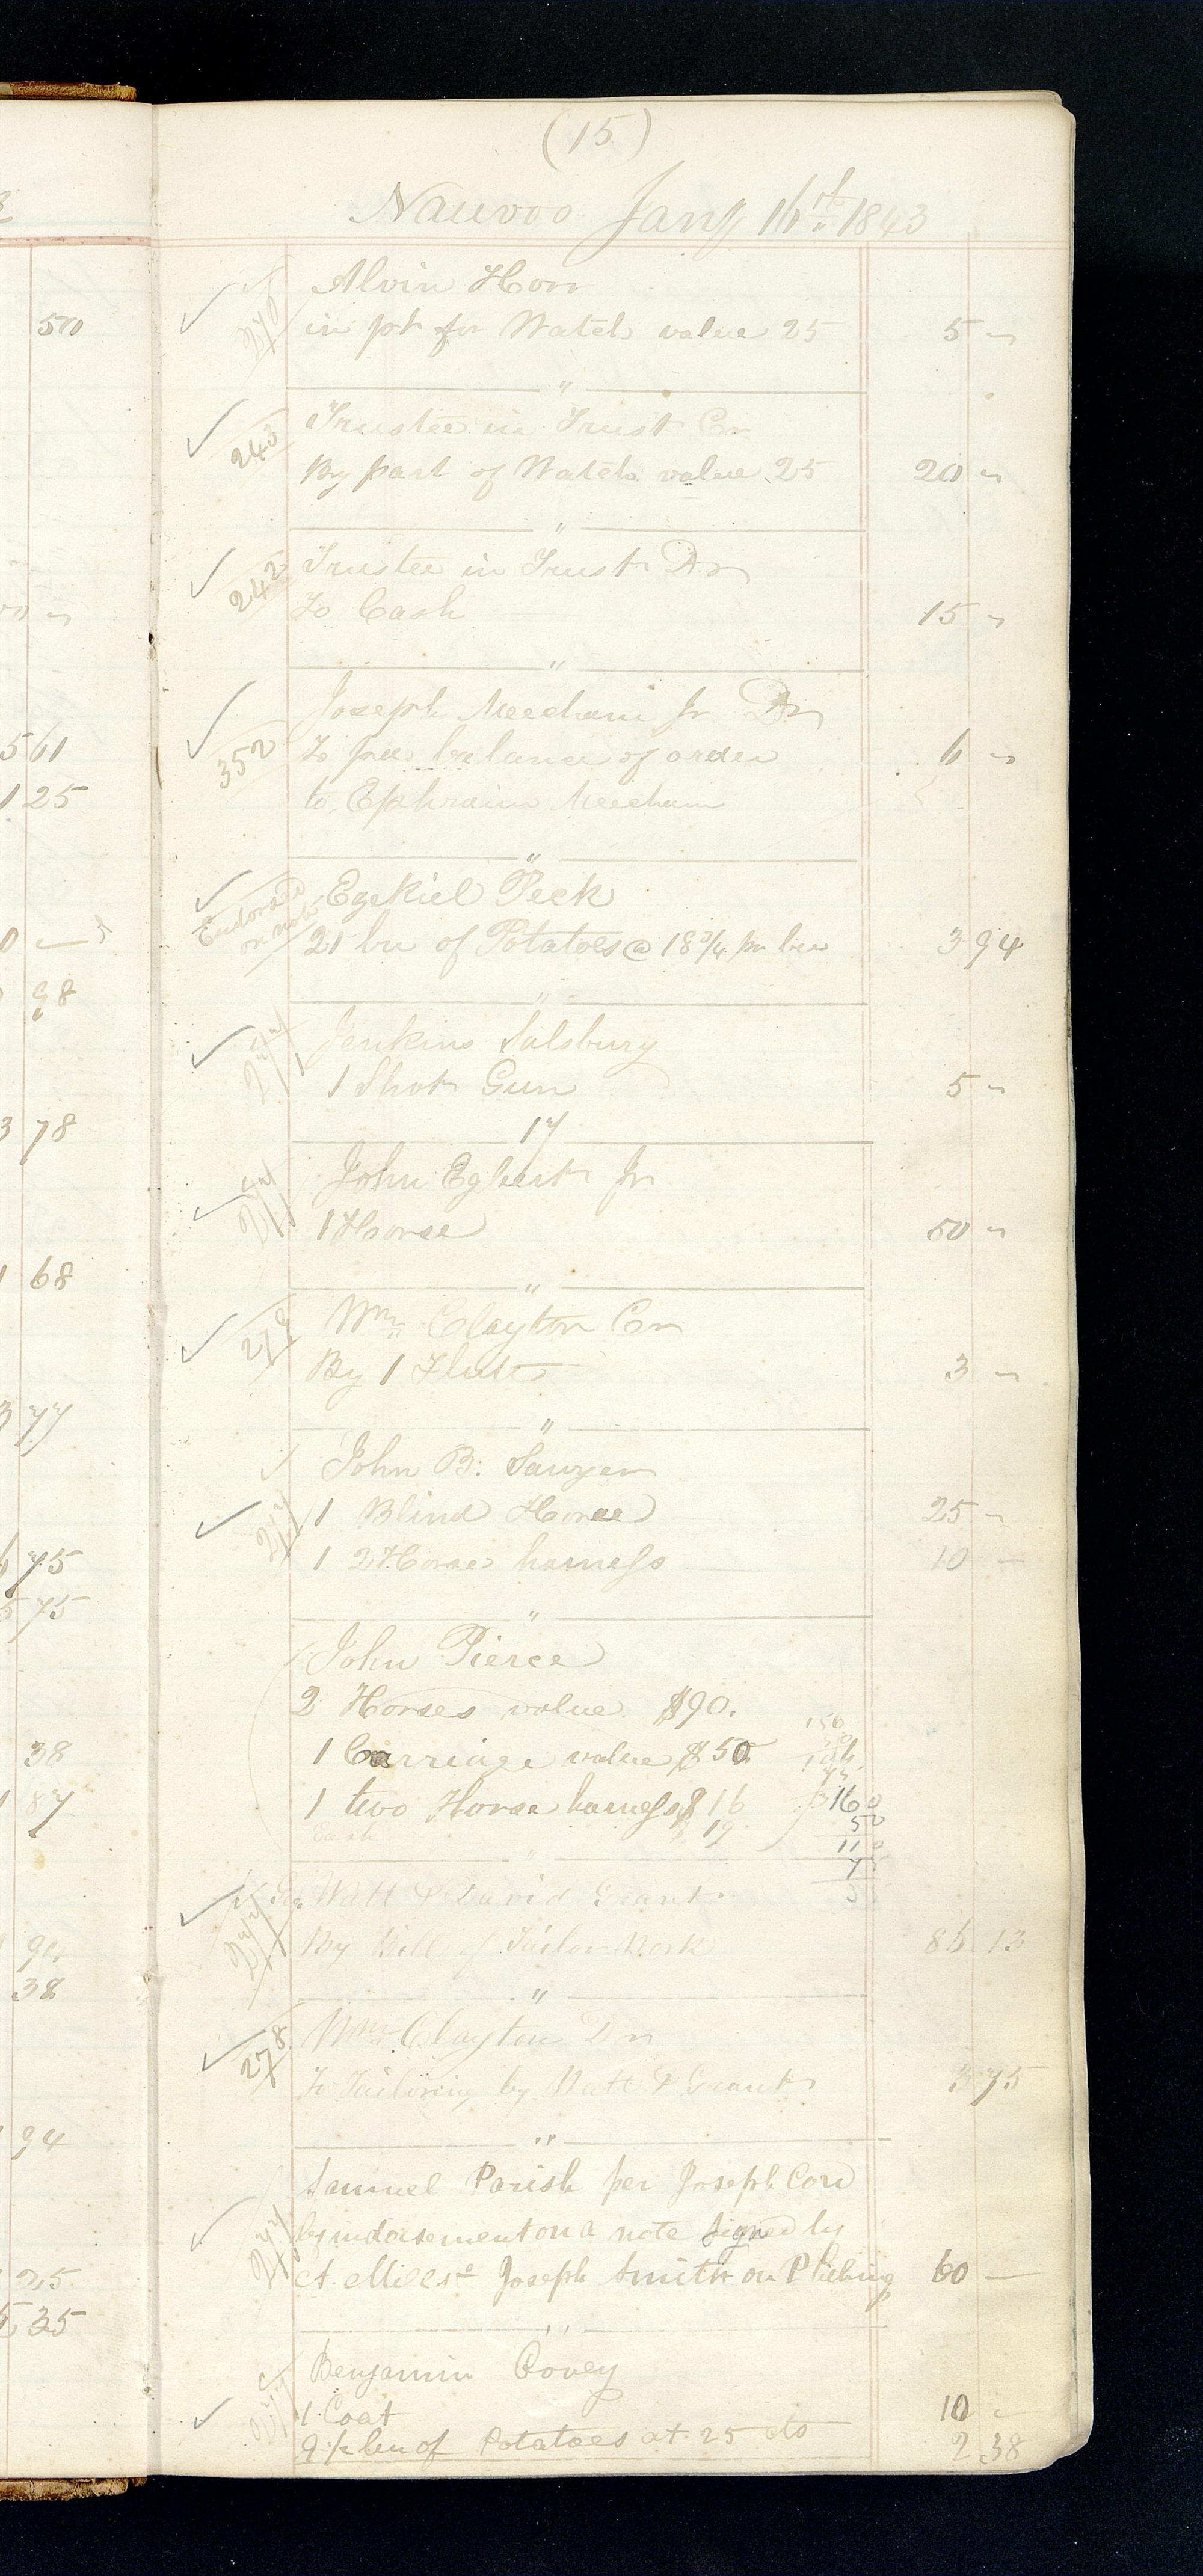 (15)
Nauvoo Jany 16th 1843
Alvin Horr
in pt for Watch value 25 5 "
"
243
Trustee in Trust Cr
By part of Watch value 25 20 "
"
242
Trustee in Trust Dr
To Cash 15 "
"
352
Joseph Meecham Jr Dr
To pre balance of order 6 "
to Ephraim Meecham
"
Endorsed on note
Ezekiel Peck
21 bu of Potatoes @ 18¾ pr bu 3 94
"
277
Jenkins Salsbury
1 Shot Gun 5 "
17
277
John Egbert Jr
1 Horse 50 "
"
278
Wm Clayton Cr
By 1 Flute 3 "
"
277
John B. Sawyer
1 Blind Horse 25 "
1 2 Horse harness 10 —
"
John Pierce
2 Horses value $90.
1 Carriage value $50
1 two Horse harness $16
Cash 19
160
50
110
"
277
Watt & David Grant
By Bill of Tailor Work 86 13
"
278
Wm Clayton Dr
To Tailoring by Watt & Grant 3 75
"
277
Samuel Parish per Joseph Cord
by indorsement on a note signed by
A. Miller & Joseph Smith on P 60 —
"
Benjamin Covey
1 Coat 10 "
9½ bu of Potatoes at 25 cts 2 38
50
5 61
1 25
98
3 78
1 68
3 77
75
5 75
38
1 87
38
94
25
35